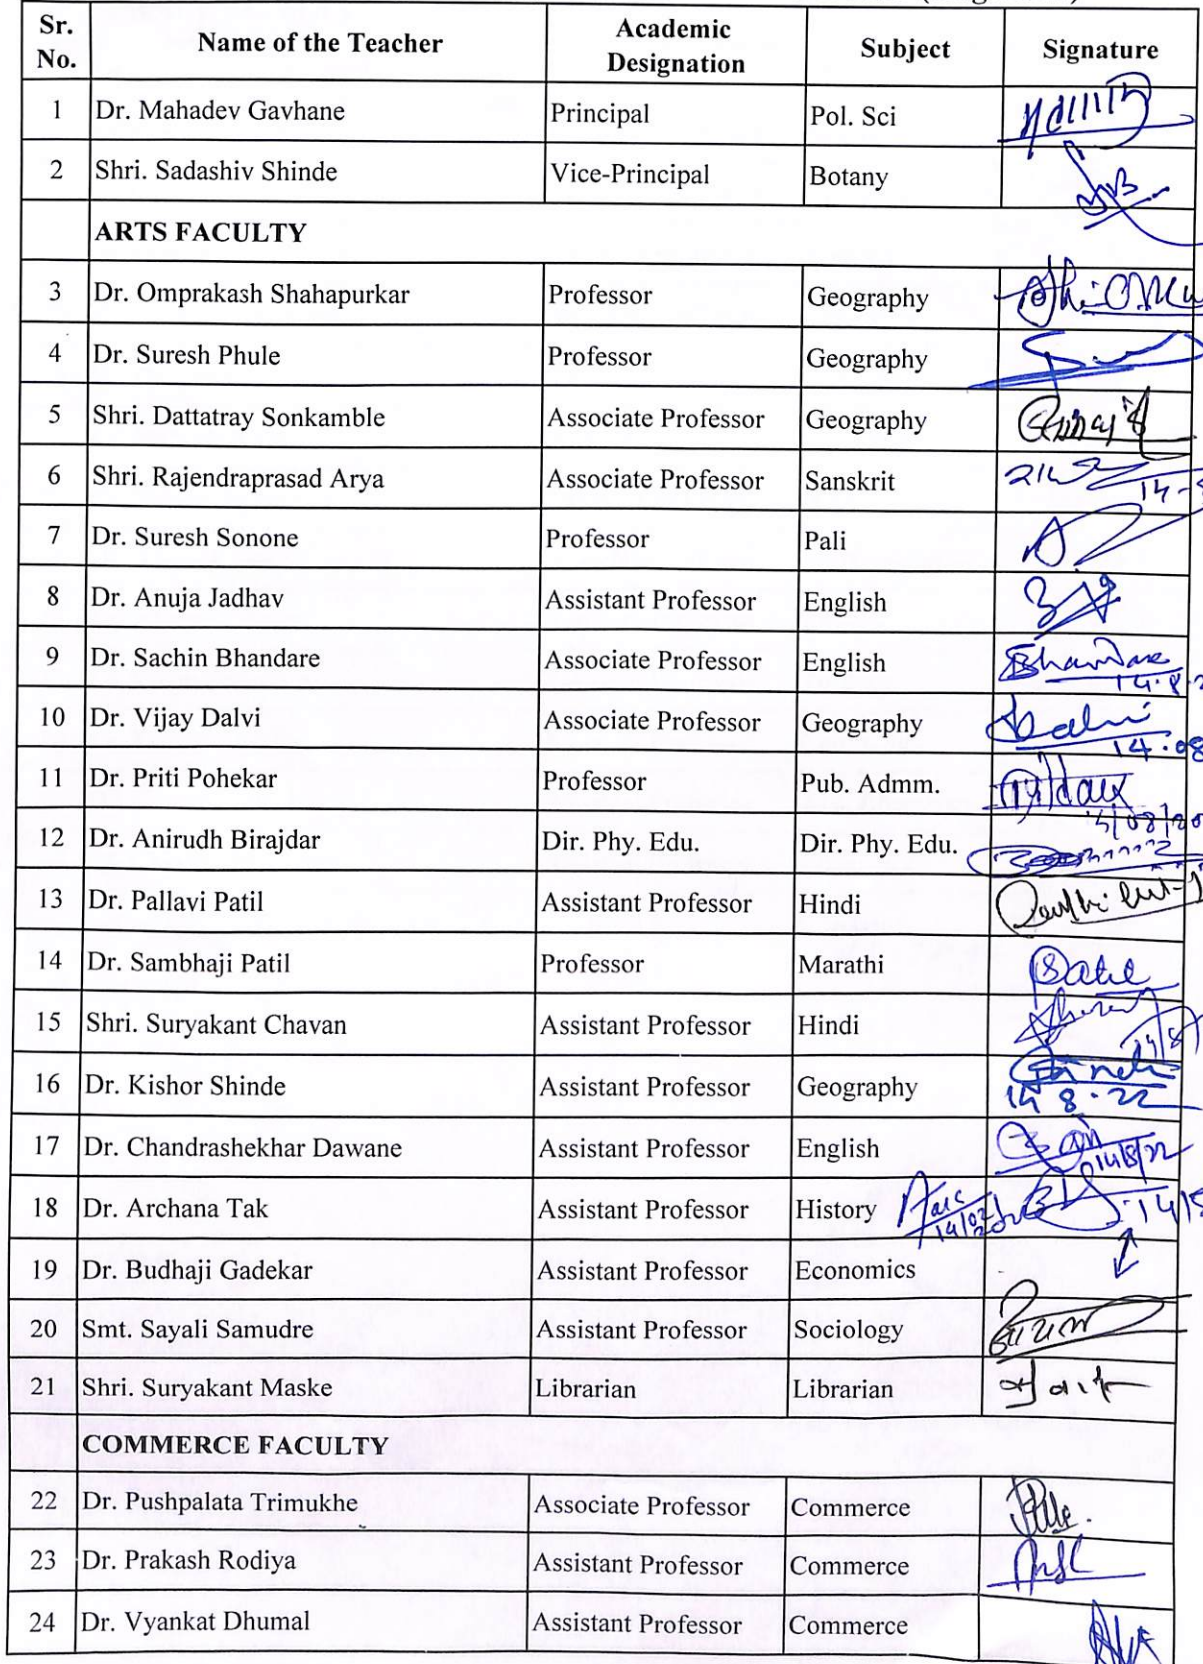 Sr. No. Name of the Teacher Academic Designation Subject Signature
1 Dr. Mahadev Gavhane Principal Pol. Sci
2 Shri. Sadashiv Shinde Vice-Principal Botany
ARTS FACULTY
3 Dr. Omprakash Shahapurkar Professor Geography
4 Dr. Suresh Phule Professor Geography
5 Shri. Dattatray Sonkamble Associate Professor Geography
6 Shri. Rajendraprasad Arya Associate Professor Sanskrit
7 Dr. Suresh Sonone Professor Pali
8 Dr. Anuja Jadhav Assistant Professor English
9 Dr. Sachin Bhandare Associate Professor English Bhandare 14.8.
10 Dr. Vijay Dalvi Associate Professor Geography Dalvi 14.08
11 Dr. Priti Pohekar Professor Pub. Admm.
12 Dr. Anirudh Birajdar Dir. Phy. Edu. Dir. Phy. Edu.
13 Dr. Pallavi Patil Assistant Professor Hindi
14 Dr. Sambhaji Patil Professor Marathi
15 Shri. Suryakant Chavan Assistant Professor Hindi
16 Dr. Kishor Shinde Assistant Professor Geography 14 8.22
17 Dr. Chandrashekhar Dawane Assistant Professor English 14/8/22
18 Dr. Archana Tak Assistant Professor History
19 Dr. Budhaji Gadekar Assistant Professor Economics
20 Smt. Sayali Samudre Assistant Professor Sociology
21 Shri. Suryakant Maske Librarian Librarian
COMMERCE FACULTY
22 Dr. Pushpalata Trimukhe Associate Professor Commerce
23 Dr. Prakash Rodiya Assistant Professor Commerce
24 Dr. Vyankat Dhumal Assistant Professor Commerce